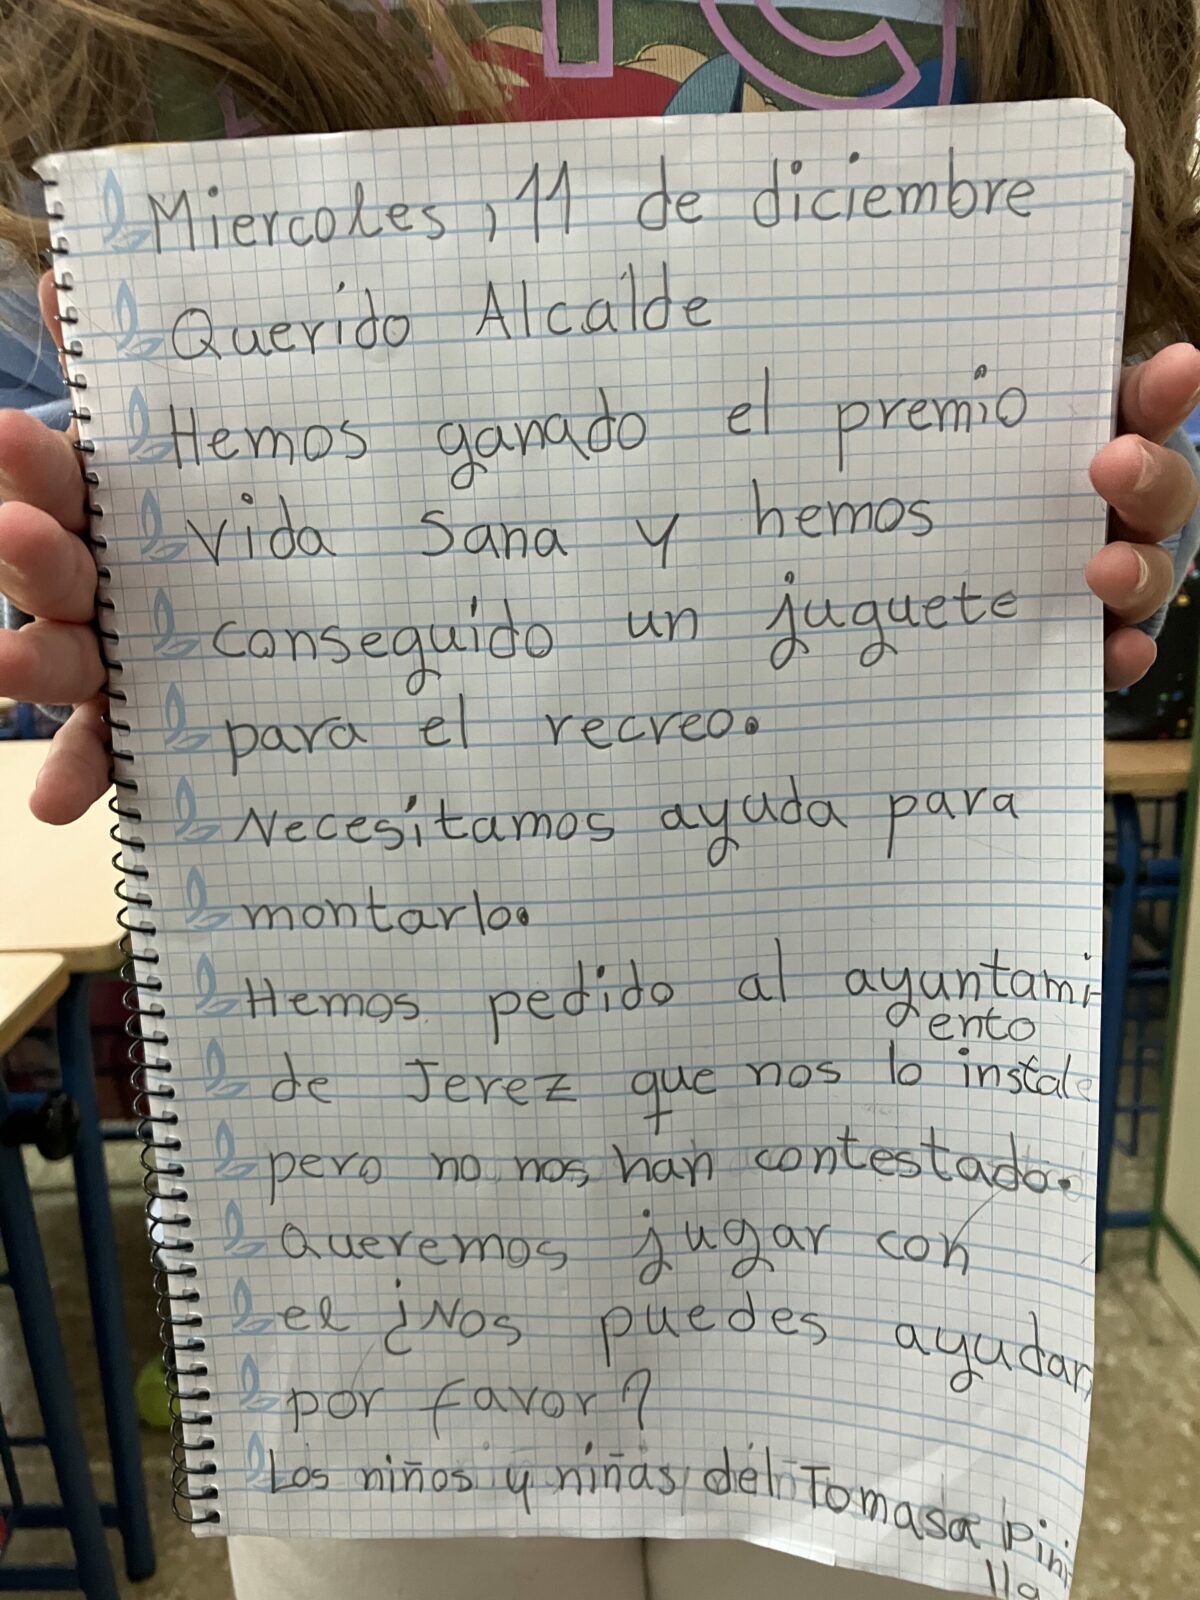 Miercoles, 11 de diciembre
Querido Alcalde
Hemos ganado el premio
Vida Sana y hemos
conseguido un juguete
para el recreo.
Necesitamos ayuda para
montarlo.
Hemos pedido al ayuntami
ento
de Jerez que nos lo instale
pero no nos han contestado.
Queremos jugar con
el ¿Nos puedes ayudar,
por favor?
Los niños y niñas del Tomasa Pini
lla